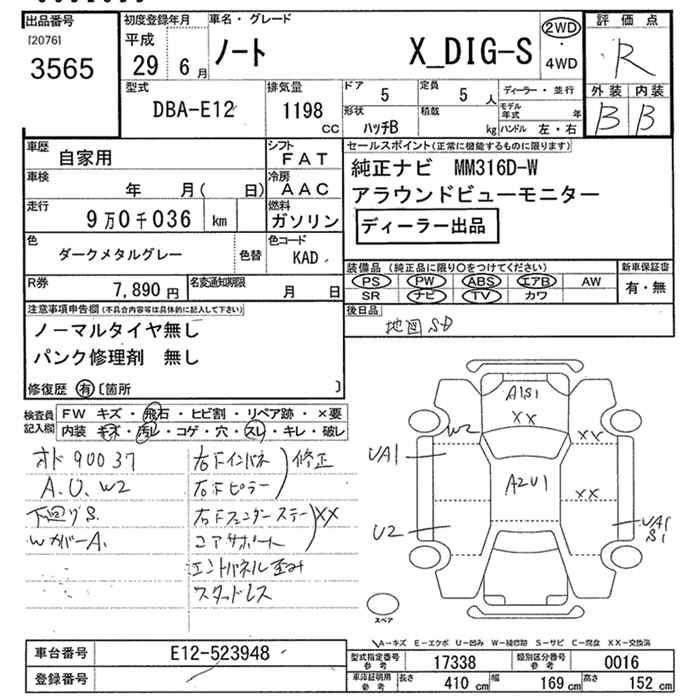 出品番号
[2076]
3565
初度登録年月
平成
29 6月
車名・グレード
ノート X_DIG-S
2WD
・
4WD
評価点
R
外装 内装
B B
型式
DBA-E12
排気量
1198
cc
ドア 5
定員 5 人
形状 ハッチB
積載 kg
ディーラー・並行
モデル年式 年
ハンドル 左・右
車歴 自家用
シフト FAT
車検 年 月( 日)
冷房 AAC
走行 9万0千036 km
燃料 ガソリン
色 ダークメタルグレー 色替
色コード KAD
R券 7,890円
名変通知期限 月 日
セールスポイント(正常に機能するものに限ります)
純正ナビ MM316D-W
アラウンドビューモニター
ディーラー出品
装備品(純正品に限り○をつけてください)
新車保証書
PS PW ABS エアB AW
SR ナビ TV カワ
有・無
後日品
地図SD
注意事項申告欄(不具合内容等は具体的に記入して下さい)
ノーマルタイヤ無し
パンク修理剤 無し
修復歴 有 〔箇所 〕
検査員記入欄
FW キズ・飛石・ヒビ割・リペア跡・×要
内装 キズ・汚レ・コゲ・穴・スレ・キレ・破レ
オド90037
A.U.W2
下廻りS.
WカバーA.
右Fインパネ
修正
右Fピラー
右Fフェンダーステー
XX
コアサポート
エンドパネル歪み
スタッドレス
A1S1
XX
W2
XX
UA1
A2U1
XX
U2
UA1
S1
スペア
A-キズ E-エクボ U-凹み W-補修跡 S-サビ C-腐食 XX-交換済
車台番号 E12-523948
登録番号
型式指定番号 参考 17338
類別区分番号 参考 0016
車庫証明用 参考
長さ 410 cm
幅 169 cm
高さ 152 cm